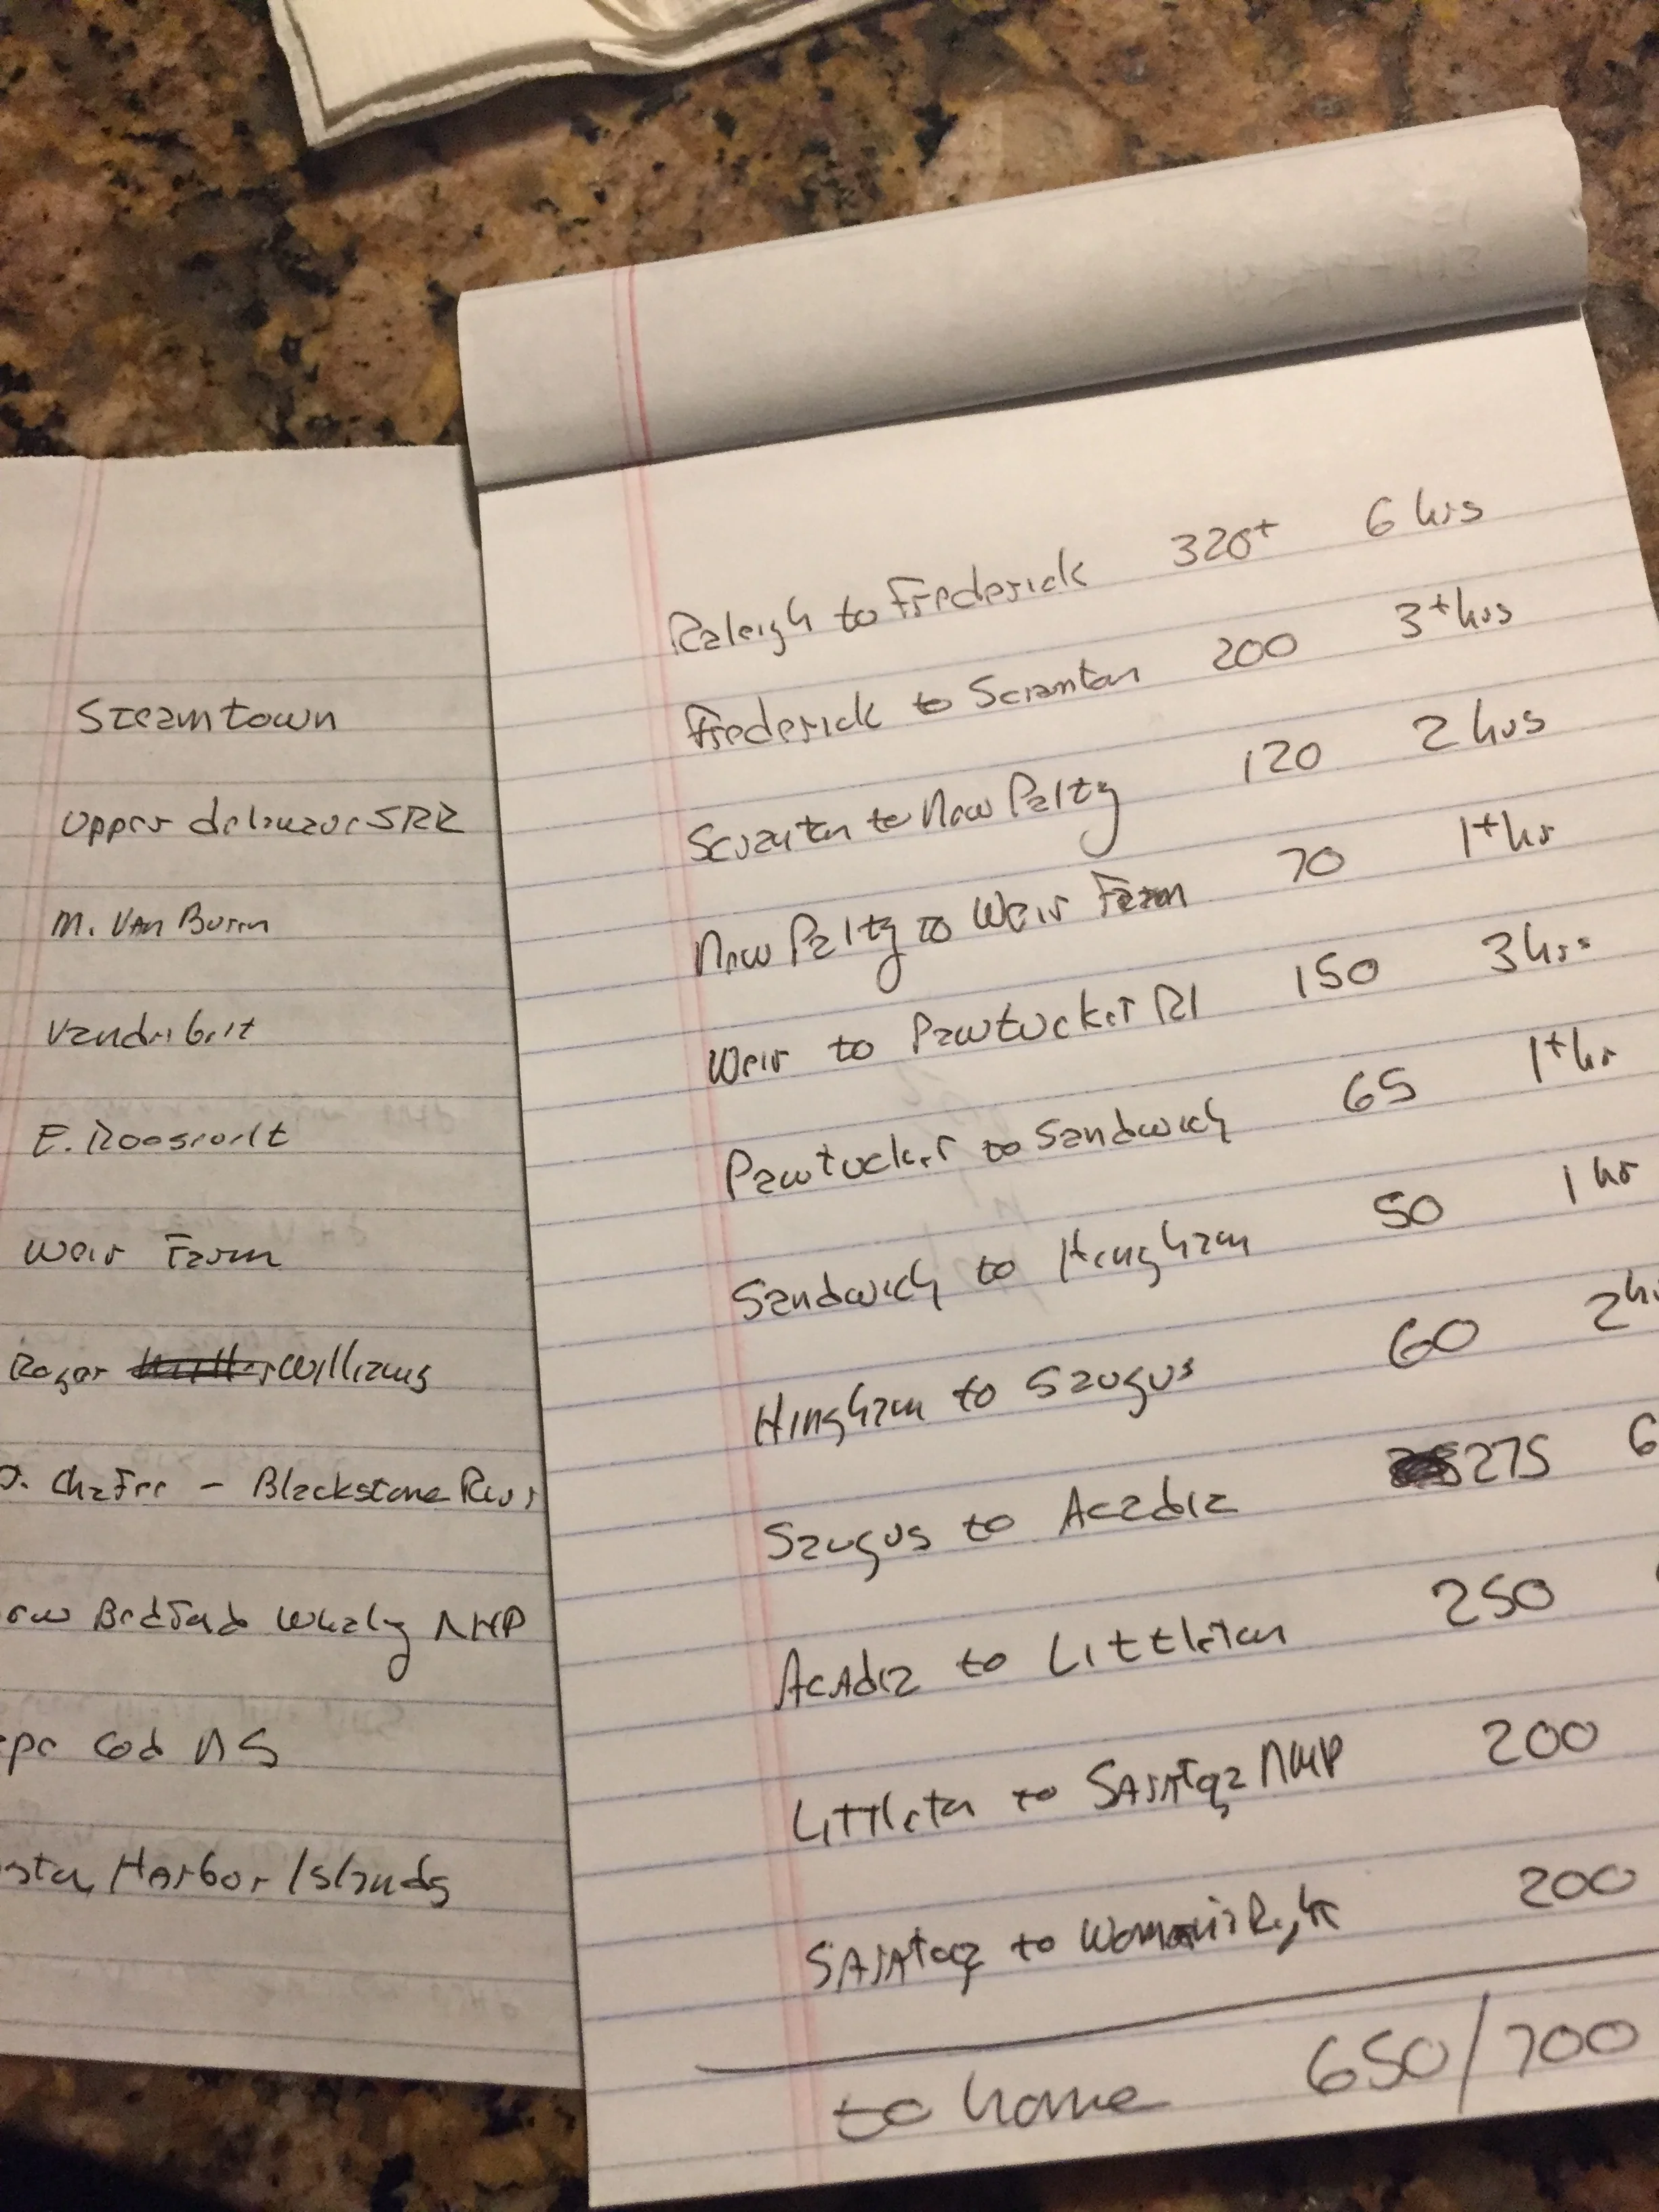 Steamtown
Upper delaware SRR
M. Van Buren
Vanderbilt
E. Roosevelt
Weir Farm
Roger Williams
J. Chafee - Blackstone River
ew Bedford Whalg NHP
ape Cod NS
ston Harbor Islands
Raleigh to Frederick 320+ 6 hrs
Frederick to Scranton 200 3+hrs
Scranton to New Paltz 120 2 hrs
New Paltz to Weir Farm 70 1+hr
Weir to Pawtucket RI 150 3 hrs
Pawtucket to Sandwich 65 1+hr
Sandwich to Hingham 50 1 hr
Hingham to Saugus 60 2 hr
Saugus to Acadia 275 6
Acadia to Littleton 250
Littleton to Saratoga NHP 200
Saratoga to Women's Right 200
to home 650/700